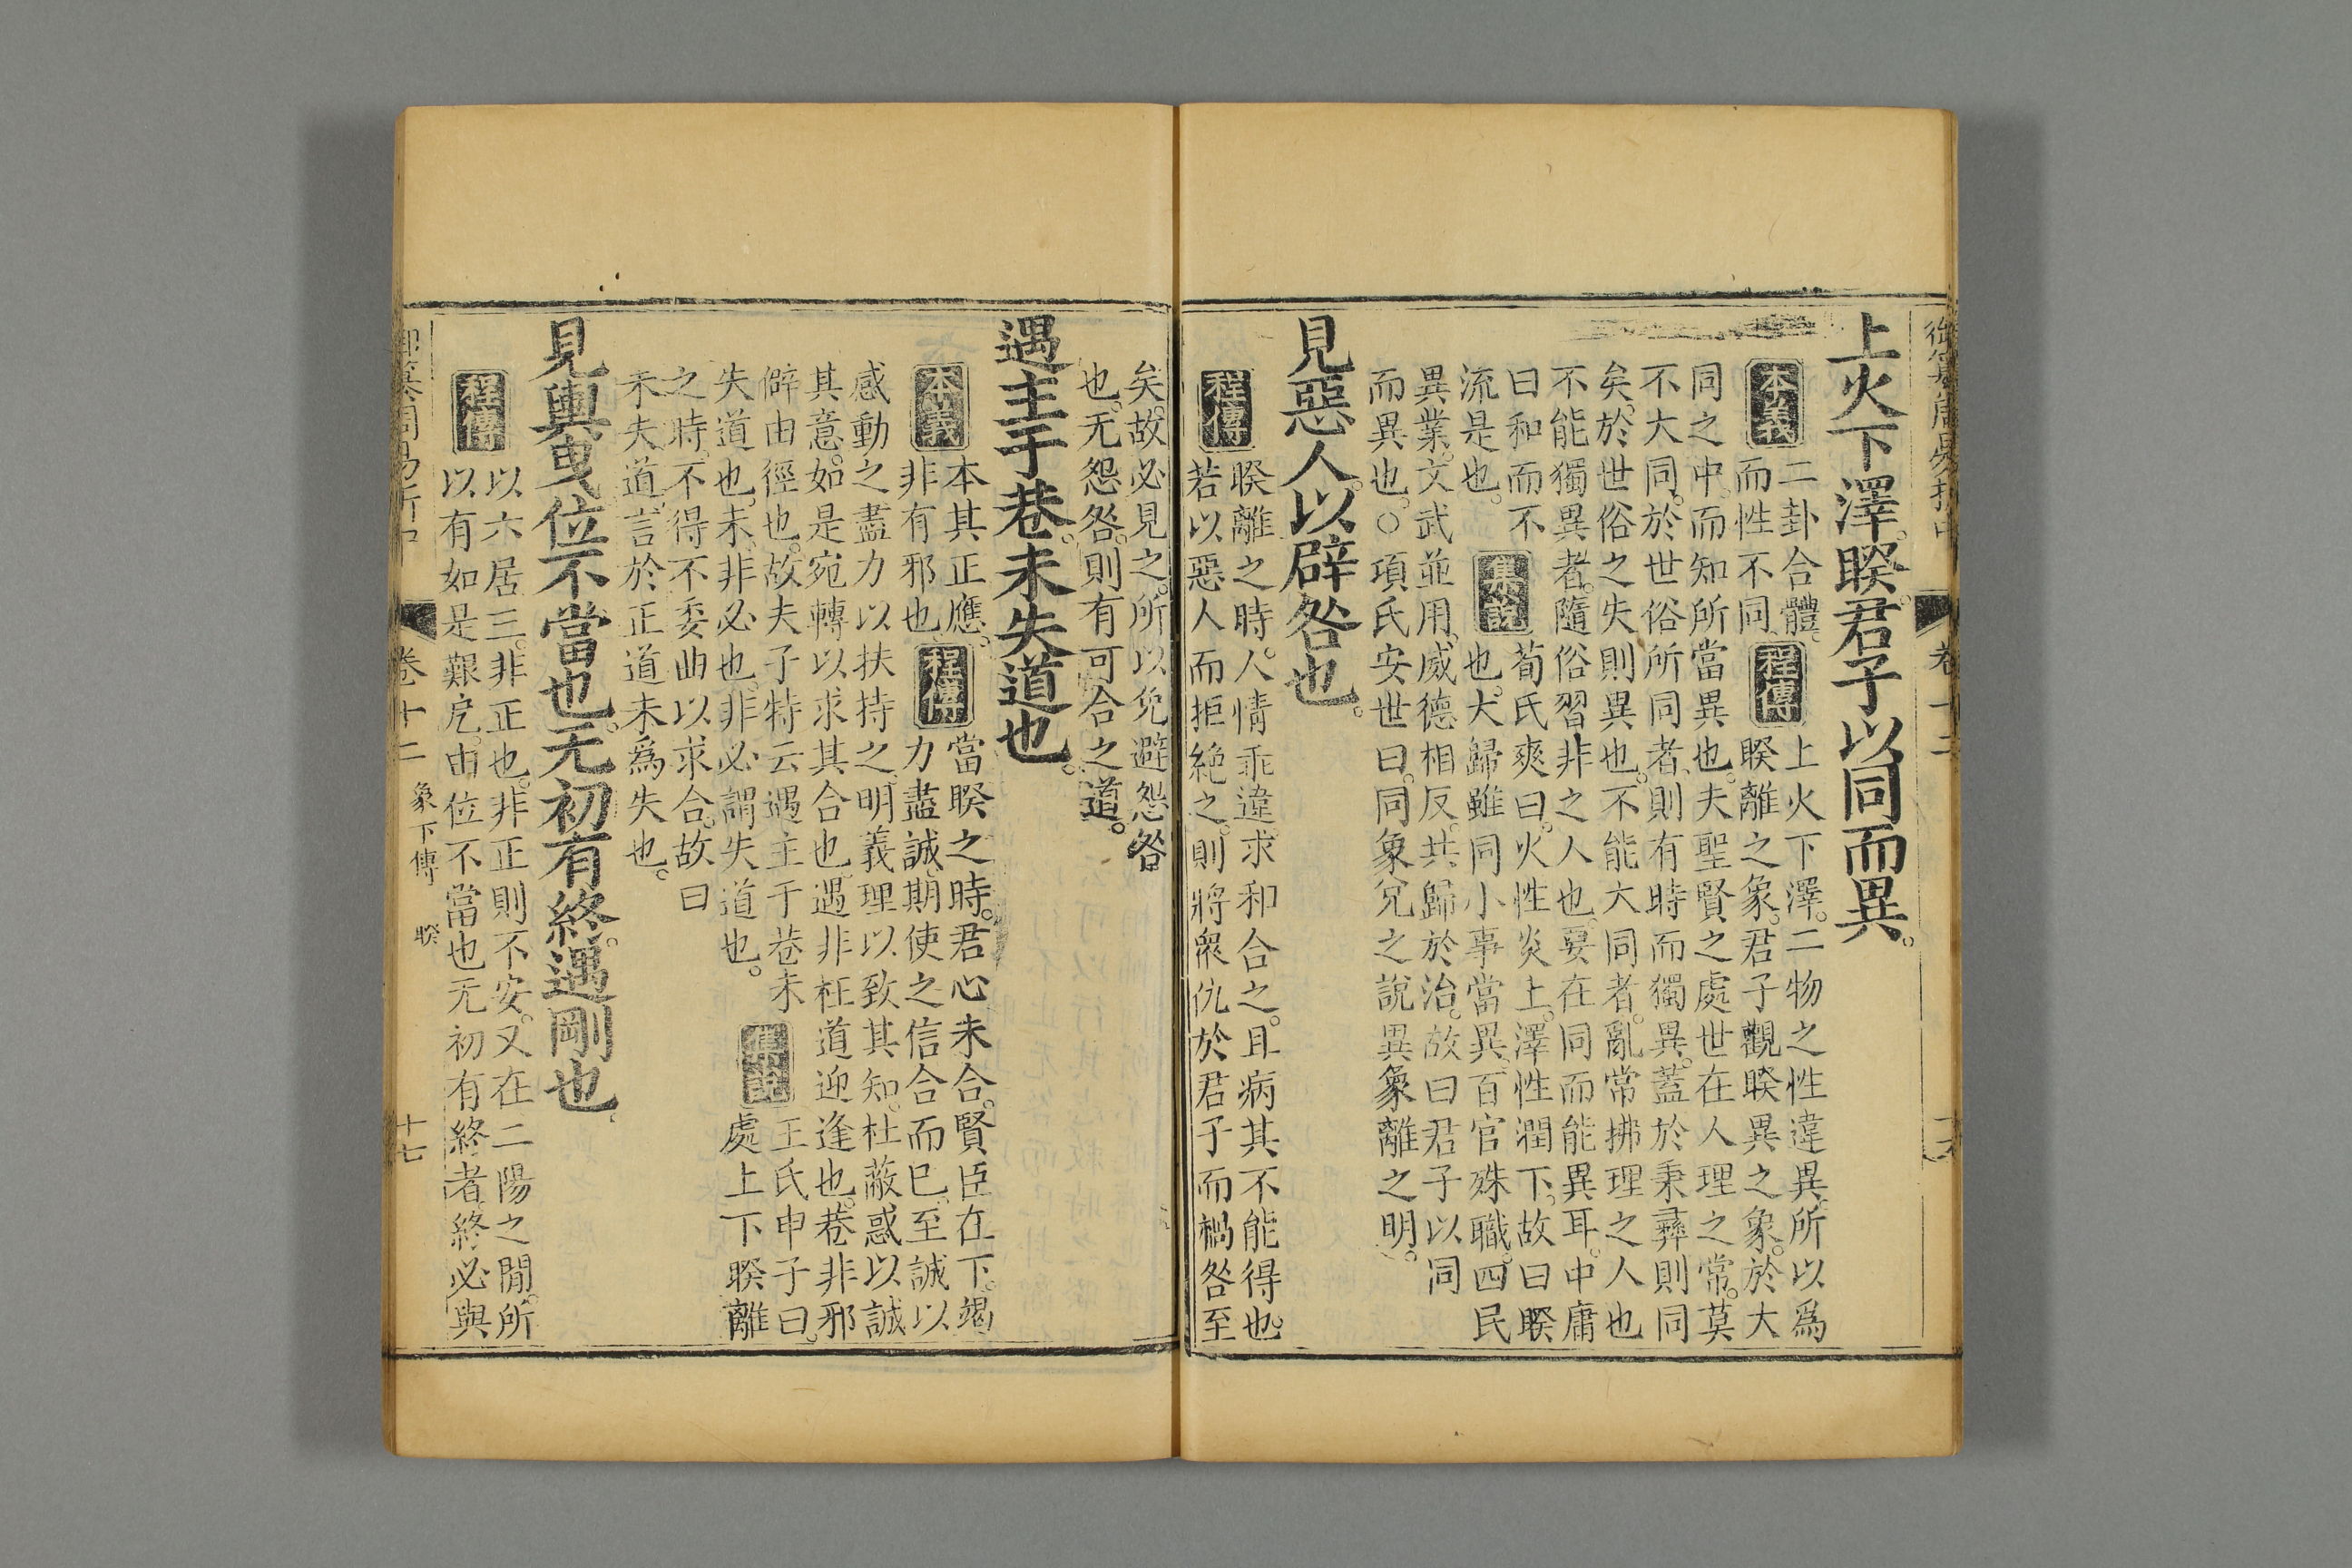 上火下澤。睽。君子以同而異。
本義 二卦合體。
而性不同。
程傳 上火下澤。二物之性違異。所以爲
睽離之象。君子觀睽異之象。於大
同之中。而知所當異也。夫聖賢之處世在人理之常。莫
不大同。於世俗所同者。則有時而獨異。蓋於秉彝則同
矣。於世俗之失則異也。不能大同者。亂常拂理之人也
不能獨異者。隨俗習非之人也。要在同而能異耳。中庸
曰和而不
流是也。
集說 荀氏爽曰。火性炎上。澤性潤下。故曰睽
也。大歸雖同小事當異。百官殊職。四民
異業。文武並用。威德相反。共歸於治。故曰君子以同
而異也。○項氏安世曰。同象兌之說異象離之明。
見惡人。以辟咎也。
程傳 睽離之時。人情乖違。求和合之。且病其不能得也。
若以惡人而拒絶之。則將衆仇於君子而禍咎至
矣。故必見之。所以免避怨咎
也。无怨咎。則有可合之道。
遇主于巷。未失道也。
本義 本其正應。
非有邪也
程傳 當睽之時。君心未合。賢臣在下。竭
力盡誠。期使之信合而已。至誠以
感動之盡力以扶持之。明義理以致其知。杜蔽惑以誠
其意。如是宛轉以求其合也。遇非枉道迎逢也。巷非邪
僻由徑也。故夫子特云遇主于巷未
失道也。未。非必也。非必謂失道也。
集說 王氏申子曰。
處上下睽離
之時。不得不委曲以求合。故曰
未失道。言於正道未爲失也。
見輿曳。位不當也。无初有終。遇剛也。
程傳 以六居三。非正也。非正則不安。又在二陽之閒。所
以有如是艱戹。由位不當也无初有終者。終必與
卷十二 象下傳 睽 十七